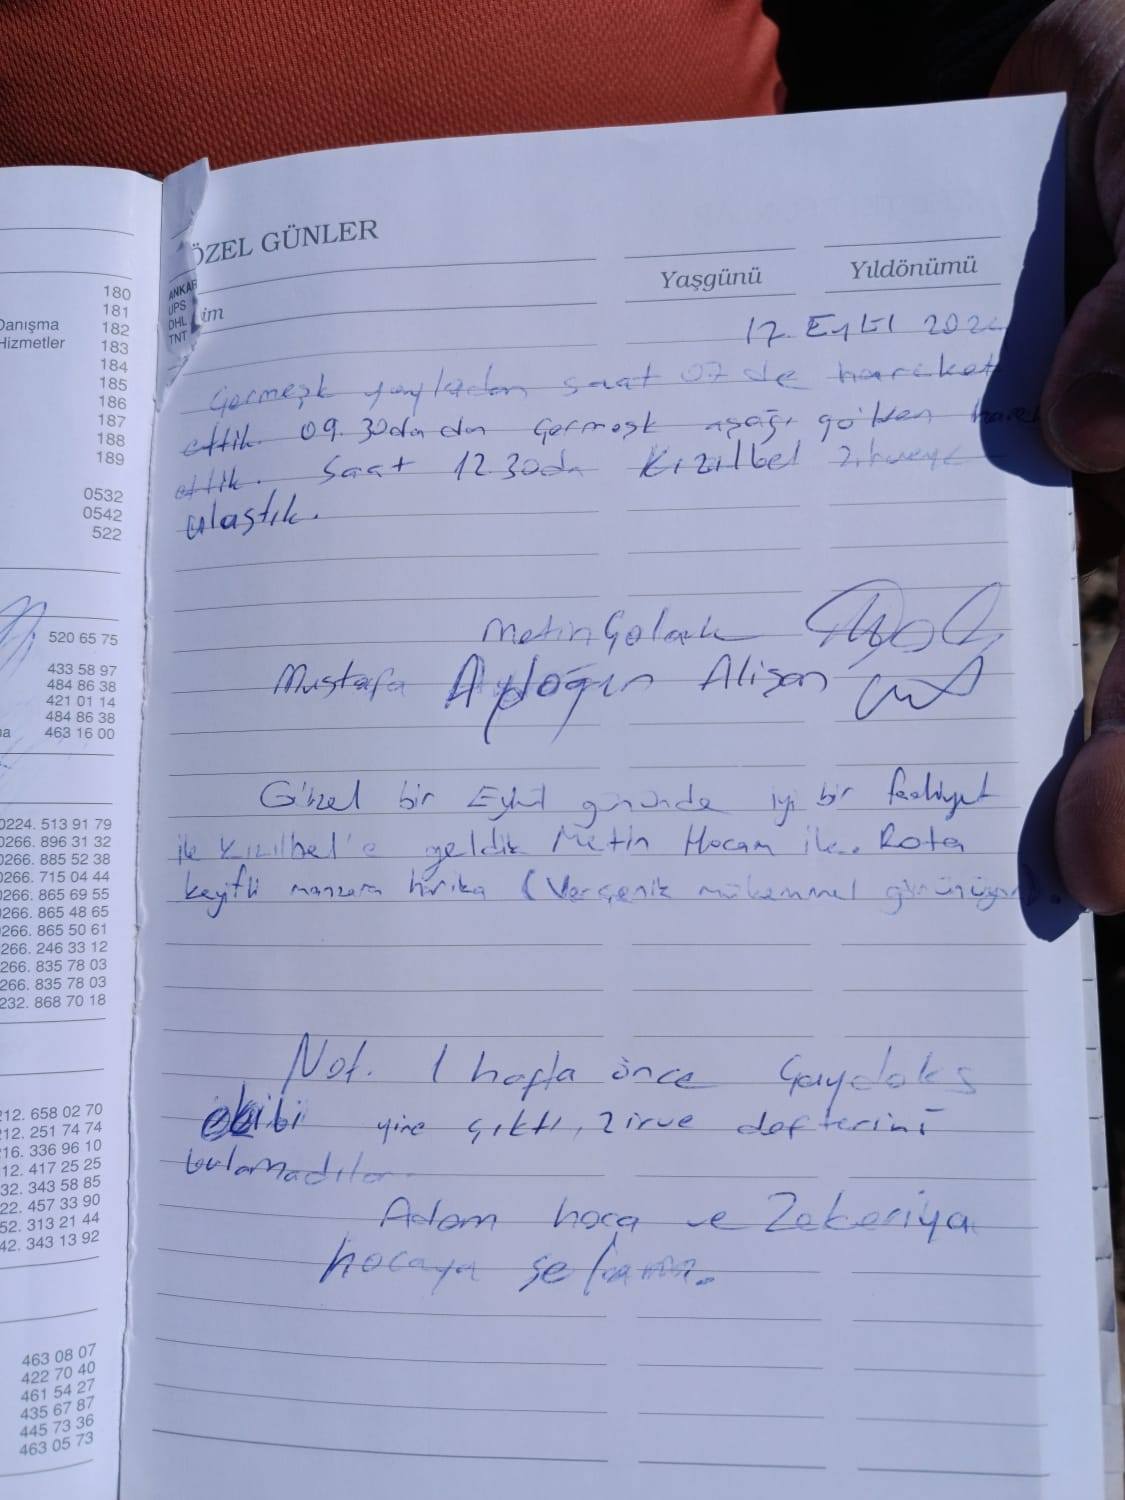 180
181
Danışma 182
Hizmetler 183
184
185
186
187
188
189
0532
0542
522
520 65 75
433 58 97
484 86 38
421 01 14
484 86 38
463 16 00
0224. 513 91 79
0266. 896 31 32
0266. 885 52 38
0266. 715 04 44
0266. 865 69 55
0266. 865 48 65
0266. 865 50 61
266. 246 33 12
266. 835 78 03
266. 835 78 03
232. 868 70 18
212. 658 02 70
212. 251 74 74
216. 336 96 10
12. 417 25 25
32. 343 58 85
22. 457 33 90
52. 313 21 44
42. 343 13 92
463 08 07
422 70 40
461 54 27
435 67 87
445 73 36
463 05 73
ANKAR
UPS
DHL
TNT
ÖZEL GÜNLER
im Yaşgünü Yıldönümü
17 Eylül
Germeşk yayladan saat 07 de hareket
ettik. 09.30da da Germeşk aşağı gölden
ettik. Saat 12.30da Kızılbel zirveye
ulaştık.
Metin Çolak
Mustafa Aydoğın Alişan
Güzel bir Eylül gününde iyi bir faaliyet
ile Kızılbel'e geldik Metin Hocam ile. Rota
keyifli manzara hirika (Verçenik mükemmel görünüyor).
Not. 1 hafta önce Gaydoks
ekibi yine çıktı, zirve defterini
bulamadılar.
Adem hoca ve Zekeriya
hocaya selam.